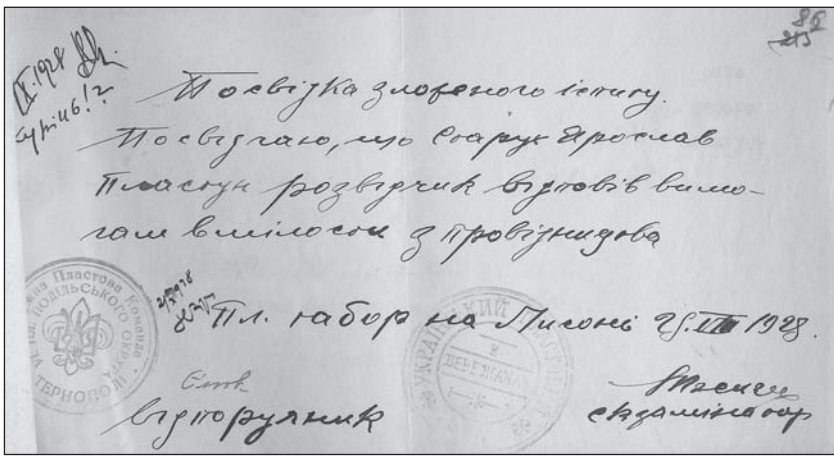 86
213
IX.1928
Посвідка зложеного іспиту.
Посвідчаю, що Старух Ярослав
Пластун розвідчик відповів вимо-
гам вмілости з провідництва
Пл. табор на Лисоні 25.VIII 1928.
відпоручник
екзамінатор
Пластова Команда
Подільського Округа
Тернопо
Український
в
Бережанах